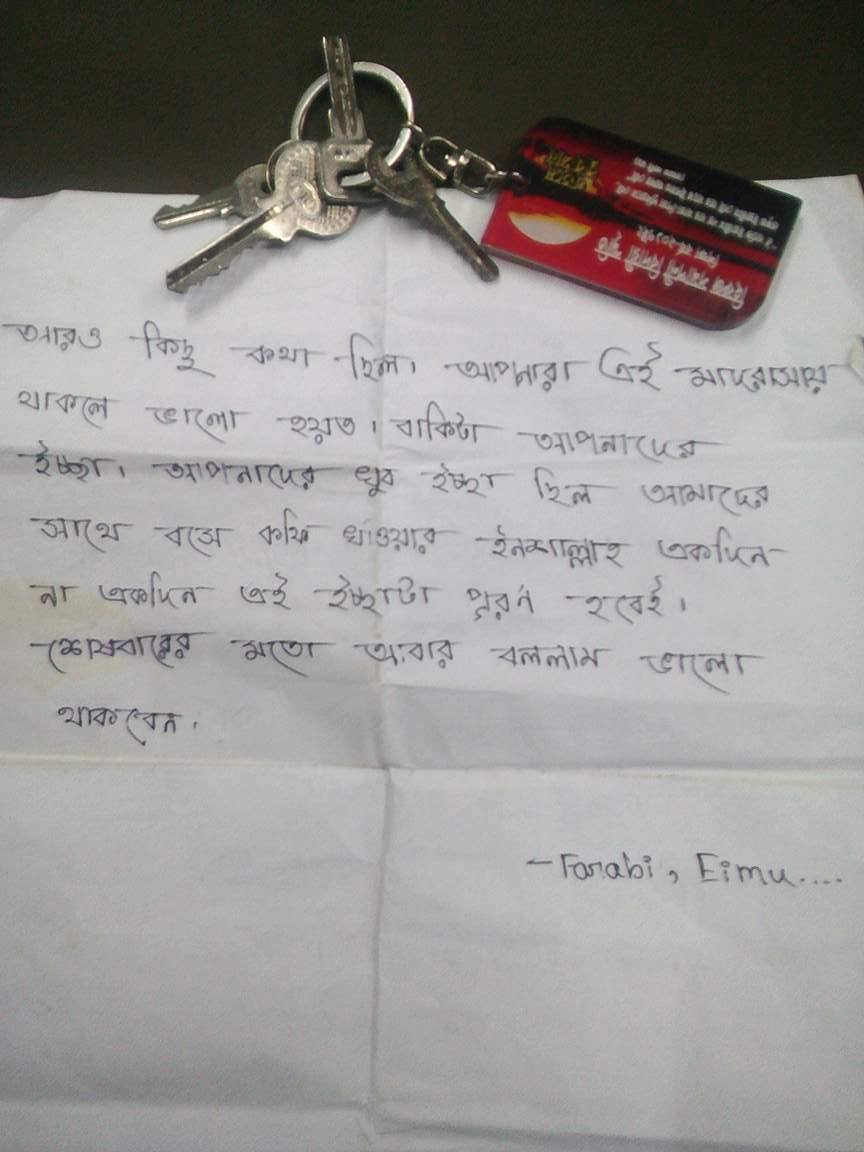 আরও কিছু কথা ছিল। আপনারা এই মাদ্রাসায়
থাকলে ভালো হয়ত। বাকিটা আপনাদের
ইচ্ছা। আপনাদের খুব ইচ্ছা ছিল আমাদের
সাথে বসে কফি খাওয়ার ইনশাল্লাহ একদিন
না একদিন এই ইচ্ছাটা পূরন হবেই।
শেষবারের মতো আবার বললাম ভালো
থাকবেন।
-Farabi, Eimu....